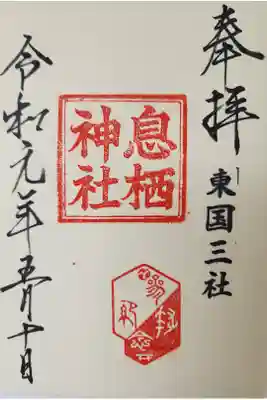 奉拝
東国三社
息栖
神社
令和元年五月十日